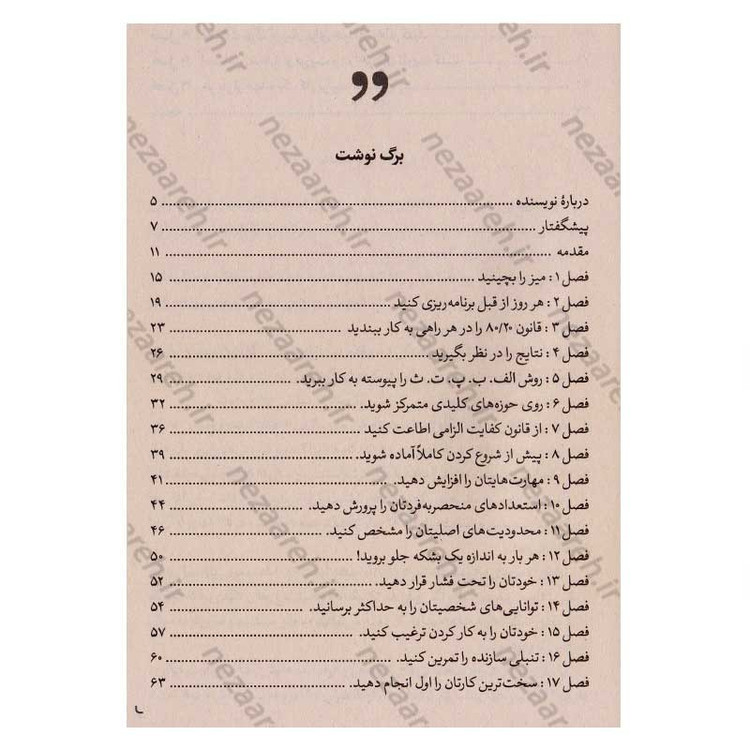 برگ نوشت
دربارهٔ نویسنده ........ ۵
پیشگفتار ........ ۷
مقدمه ........ ۱۱
فصل ۱: میز را بچینید ........ ۱۵
فصل ۲: هر روز از قبل برنامه‌ریزی کنید. ........ ۱۹
فصل ۳: قانون ۸۰/۲۰ را در هر راهی به کار ببندید ........ ۲۳
فصل ۴: نتایج را در نظر بگیرید ........ ۲۶
فصل ۵: روش الف. ب. پ. ت. ث را پیوسته به کار ببرید. ........ ۲۹
فصل ۶: روی حوزه‌های کلیدی متمرکز شوید. ........ ۳۲
فصل ۷: از قانون کفایت الزامی اطاعت کنید ........ ۳۶
فصل ۸: پیش از شروع کردن کاملاً آماده شوید. ........ ۳۹
فصل ۹: مهارت‌هایتان را افزایش دهید. ........ ۴۱
فصل ۱۰: استعدادهای منحصربه‌فردتان را پرورش دهید. ........ ۴۴
فصل ۱۱: محدودیت‌های اصلیتان را مشخص کنید. ........ ۴۶
فصل ۱۲: هر بار به اندازه یک بشکه جلو بروید! ........ ۵۰
فصل ۱۳: خودتان را تحت فشار قرار دهید. ........ ۵۲
فصل ۱۴: توانایی‌های شخصیتان را به حداکثر برسانید. ........ ۵۴
فصل ۱۵: خودتان را به کار کردن ترغیب کنید. ........ ۵۷
فصل ۱۶: تنبلی سازنده را تمرین کنید. ........ ۶۰
فصل ۱۷: سخت‌ترین کارتان را اول انجام دهید. ........ ۶۳
nezaareh.ir